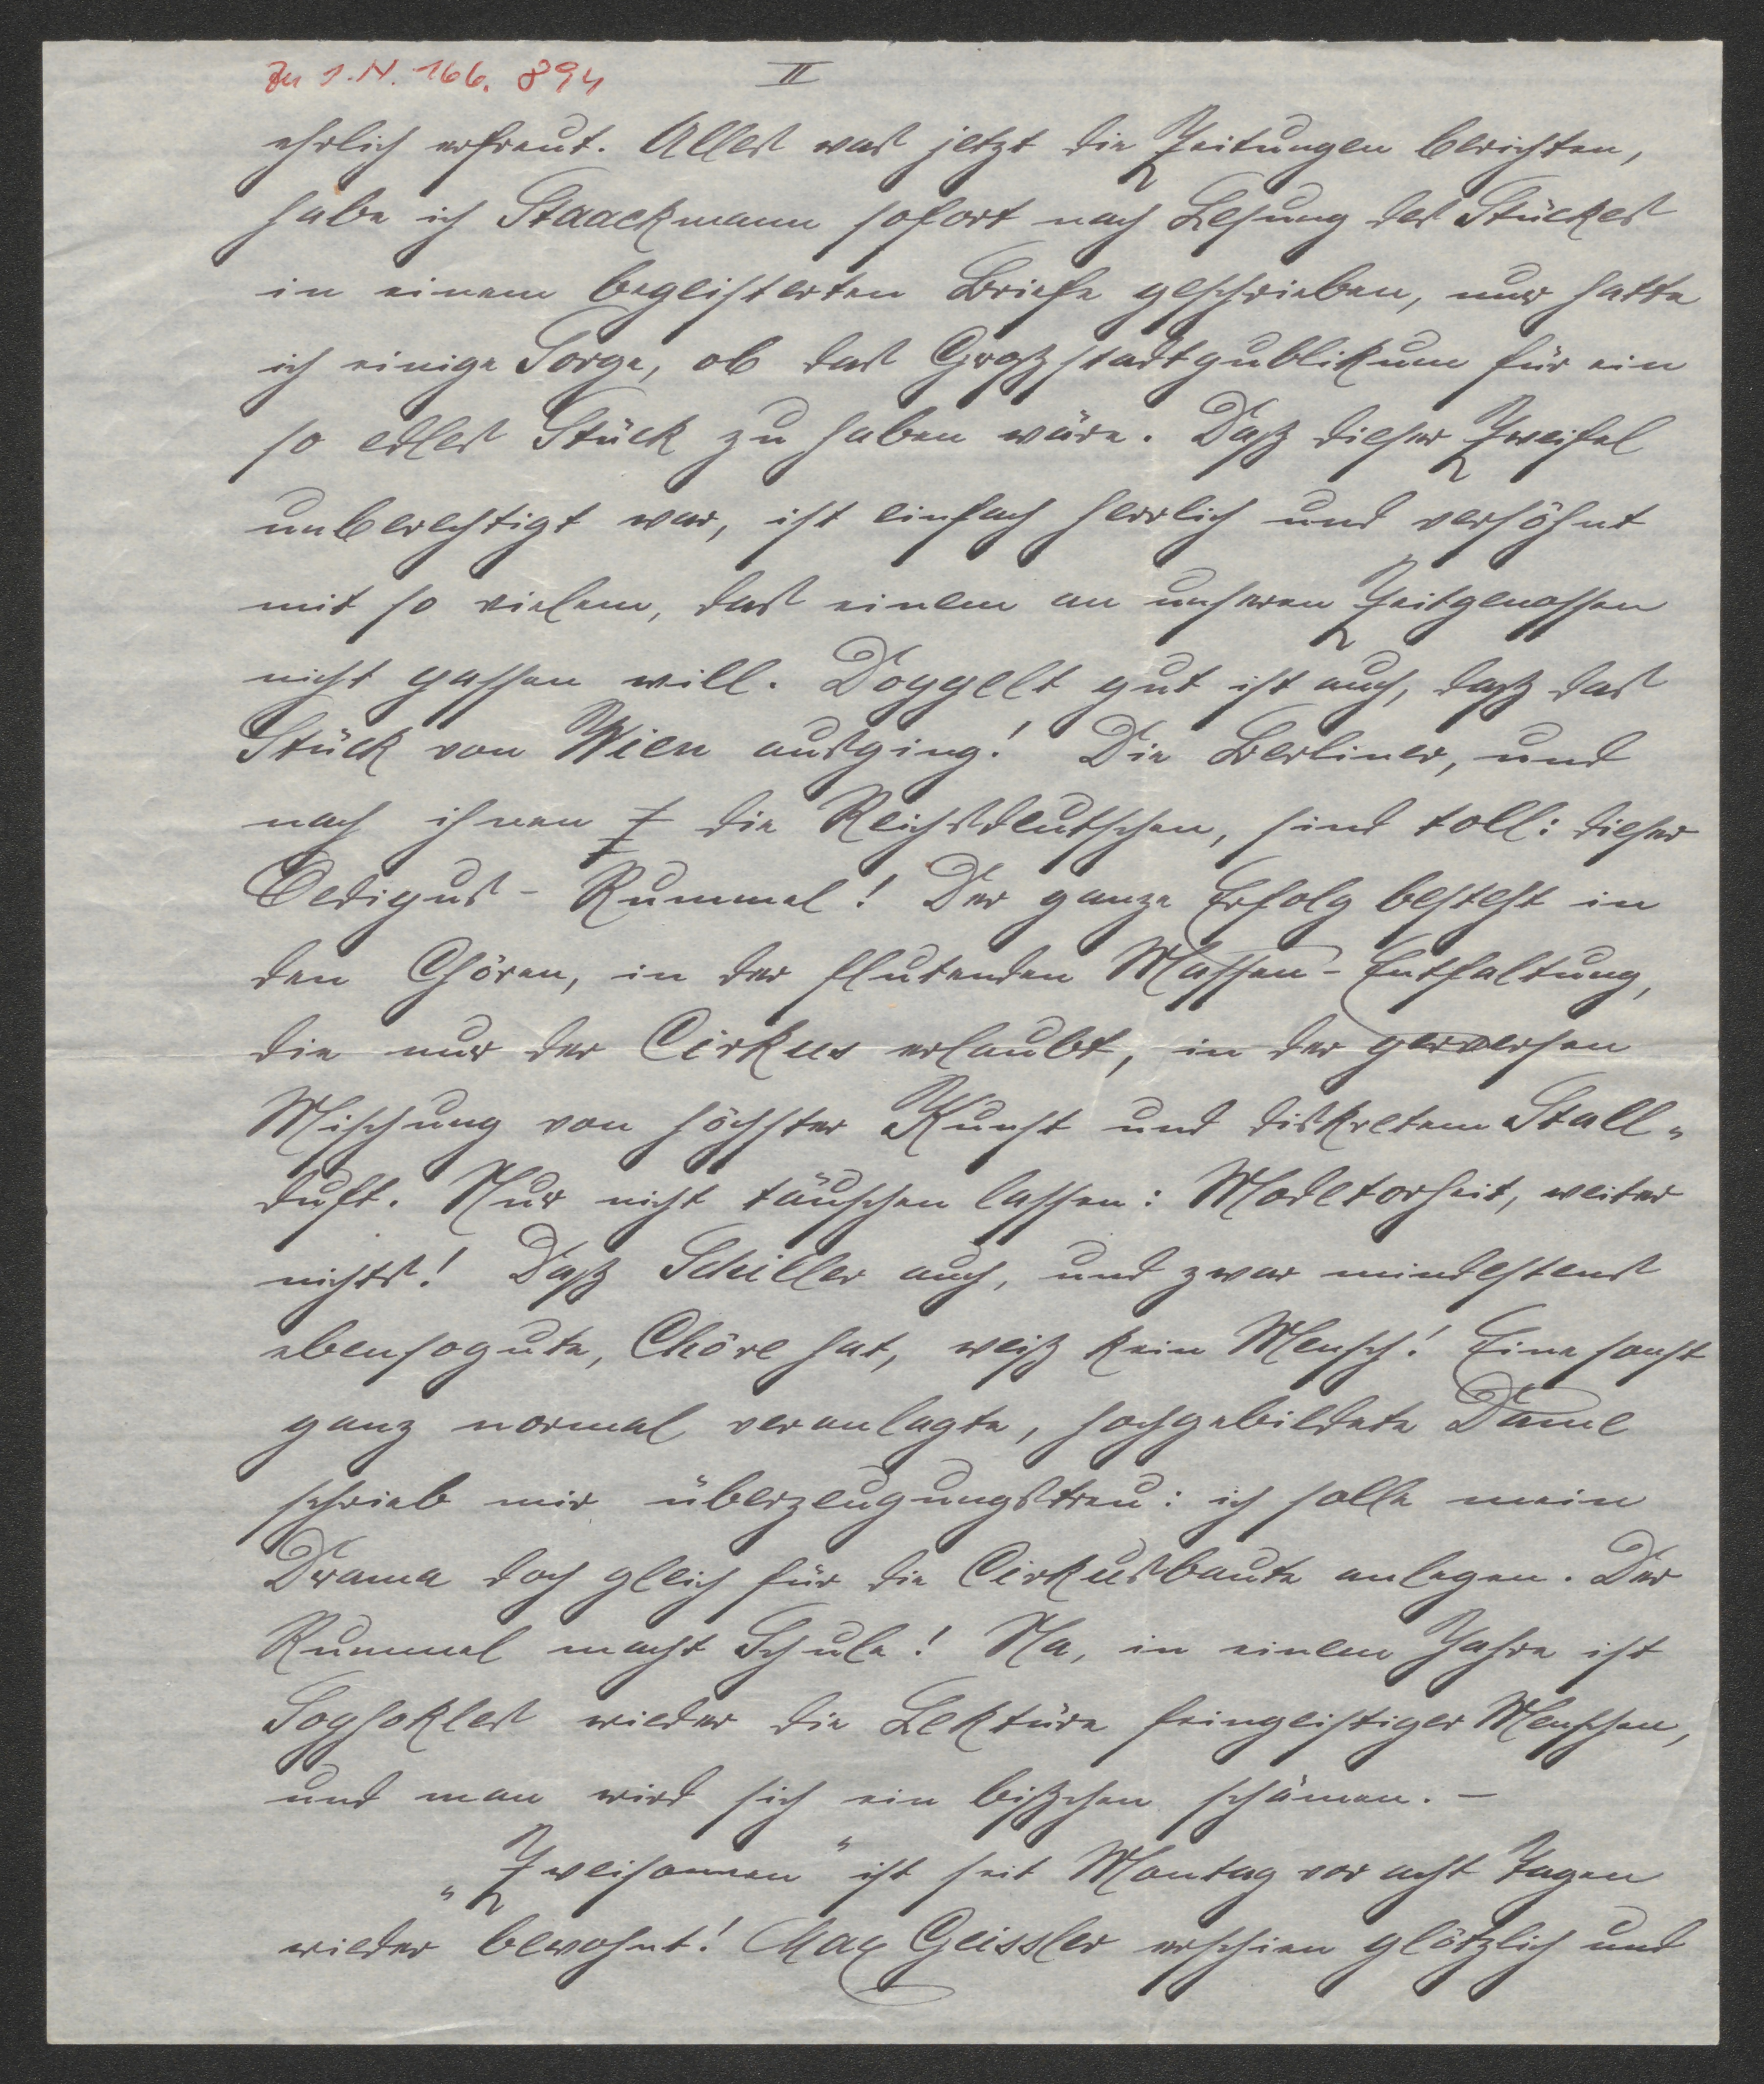 Zu I.N. 166.894
II
ehrlich erfreut. Alles was jetzt die Zeitungen berichten,
habe ich Staackmann sofort nach Lesung des Stückes
in einem begeisterten Briefe geschrieben, nur hatte
ich einige Sorge, ob das Großstadtpublikum für ein
so edles Stück zu haben wäre. Daß dieser Zweifel
unberechtigt war, ist einfach herrlich und versöhnt
mit so vielem, das einem an unseren Zeitgenossen
nicht passen will. Doppelt gut ist auch, daß das
Stück von Wien ausging! Die Berliner, und
nach ihnen die Reichsdeutschen, sind toll: dieser
Oedipus-Rummel! Der ganze Erfolg besteht in
den Chören, in der flutenden Massen-Entfaltung,
die nur der Cirkus erlaubt, in der perversen
Mischung von höchster Kunst und diskretem Stall-
duft. Nur nicht täuschen lassen: Modetorheit, weiter
nichts! Daß Schiller auch, und zwar mindestens
ebensogute, Chöre hat, weiß kein Mensch! Eine sonst
ganz normal veranlagte, hochgebildete Dame
schrieb mir überzeugungstreu: ich solle mein
Drama doch gleich für die Cirkusbaute anlegen. Der
Rummel macht Schule! Na, in einem Jahre ist
Sophokles wieder die Lektüre feingeistiger Menschen,
und man wird sich ein bißchen schämen. –
„Zweisonnen" ist seit Montag vor acht Tagen
wieder bewohnt! Max Geissler erschien plötzlich und